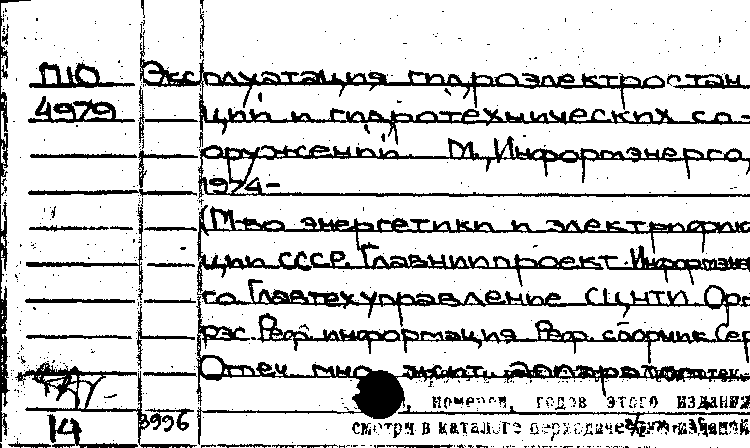 П10 Эксплуатация гидроэлектростан
4979 ций и гидротехнических со-
оружений. М., Информэнерго,
1974-
(М-во энергетики и электрифик
ции СССР. Главниипроект. Информэне
го Главтехуправление СЦНТИ. Орг
рэс. Реф. информация. Реф. сборник. Сер
Отпеч. мно
, номерам, годов этого издания
14 3996 смотри в каталоге периодиче изданий